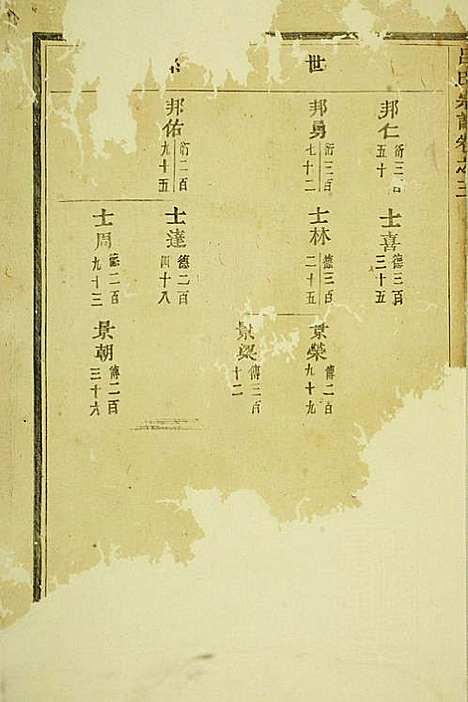 呂氏宗譜卷之三
世系
邦仁 衍三百五十
士喜 德三百三十五
邦勇 衍三百七十二
士林 德三百二十五
景榮 傳二百九十九
景梁 傳三百十二
邦佑 衍二百九十五
士達 德二百四十八
士周 德二百九十三
景朝 傳二百三十六